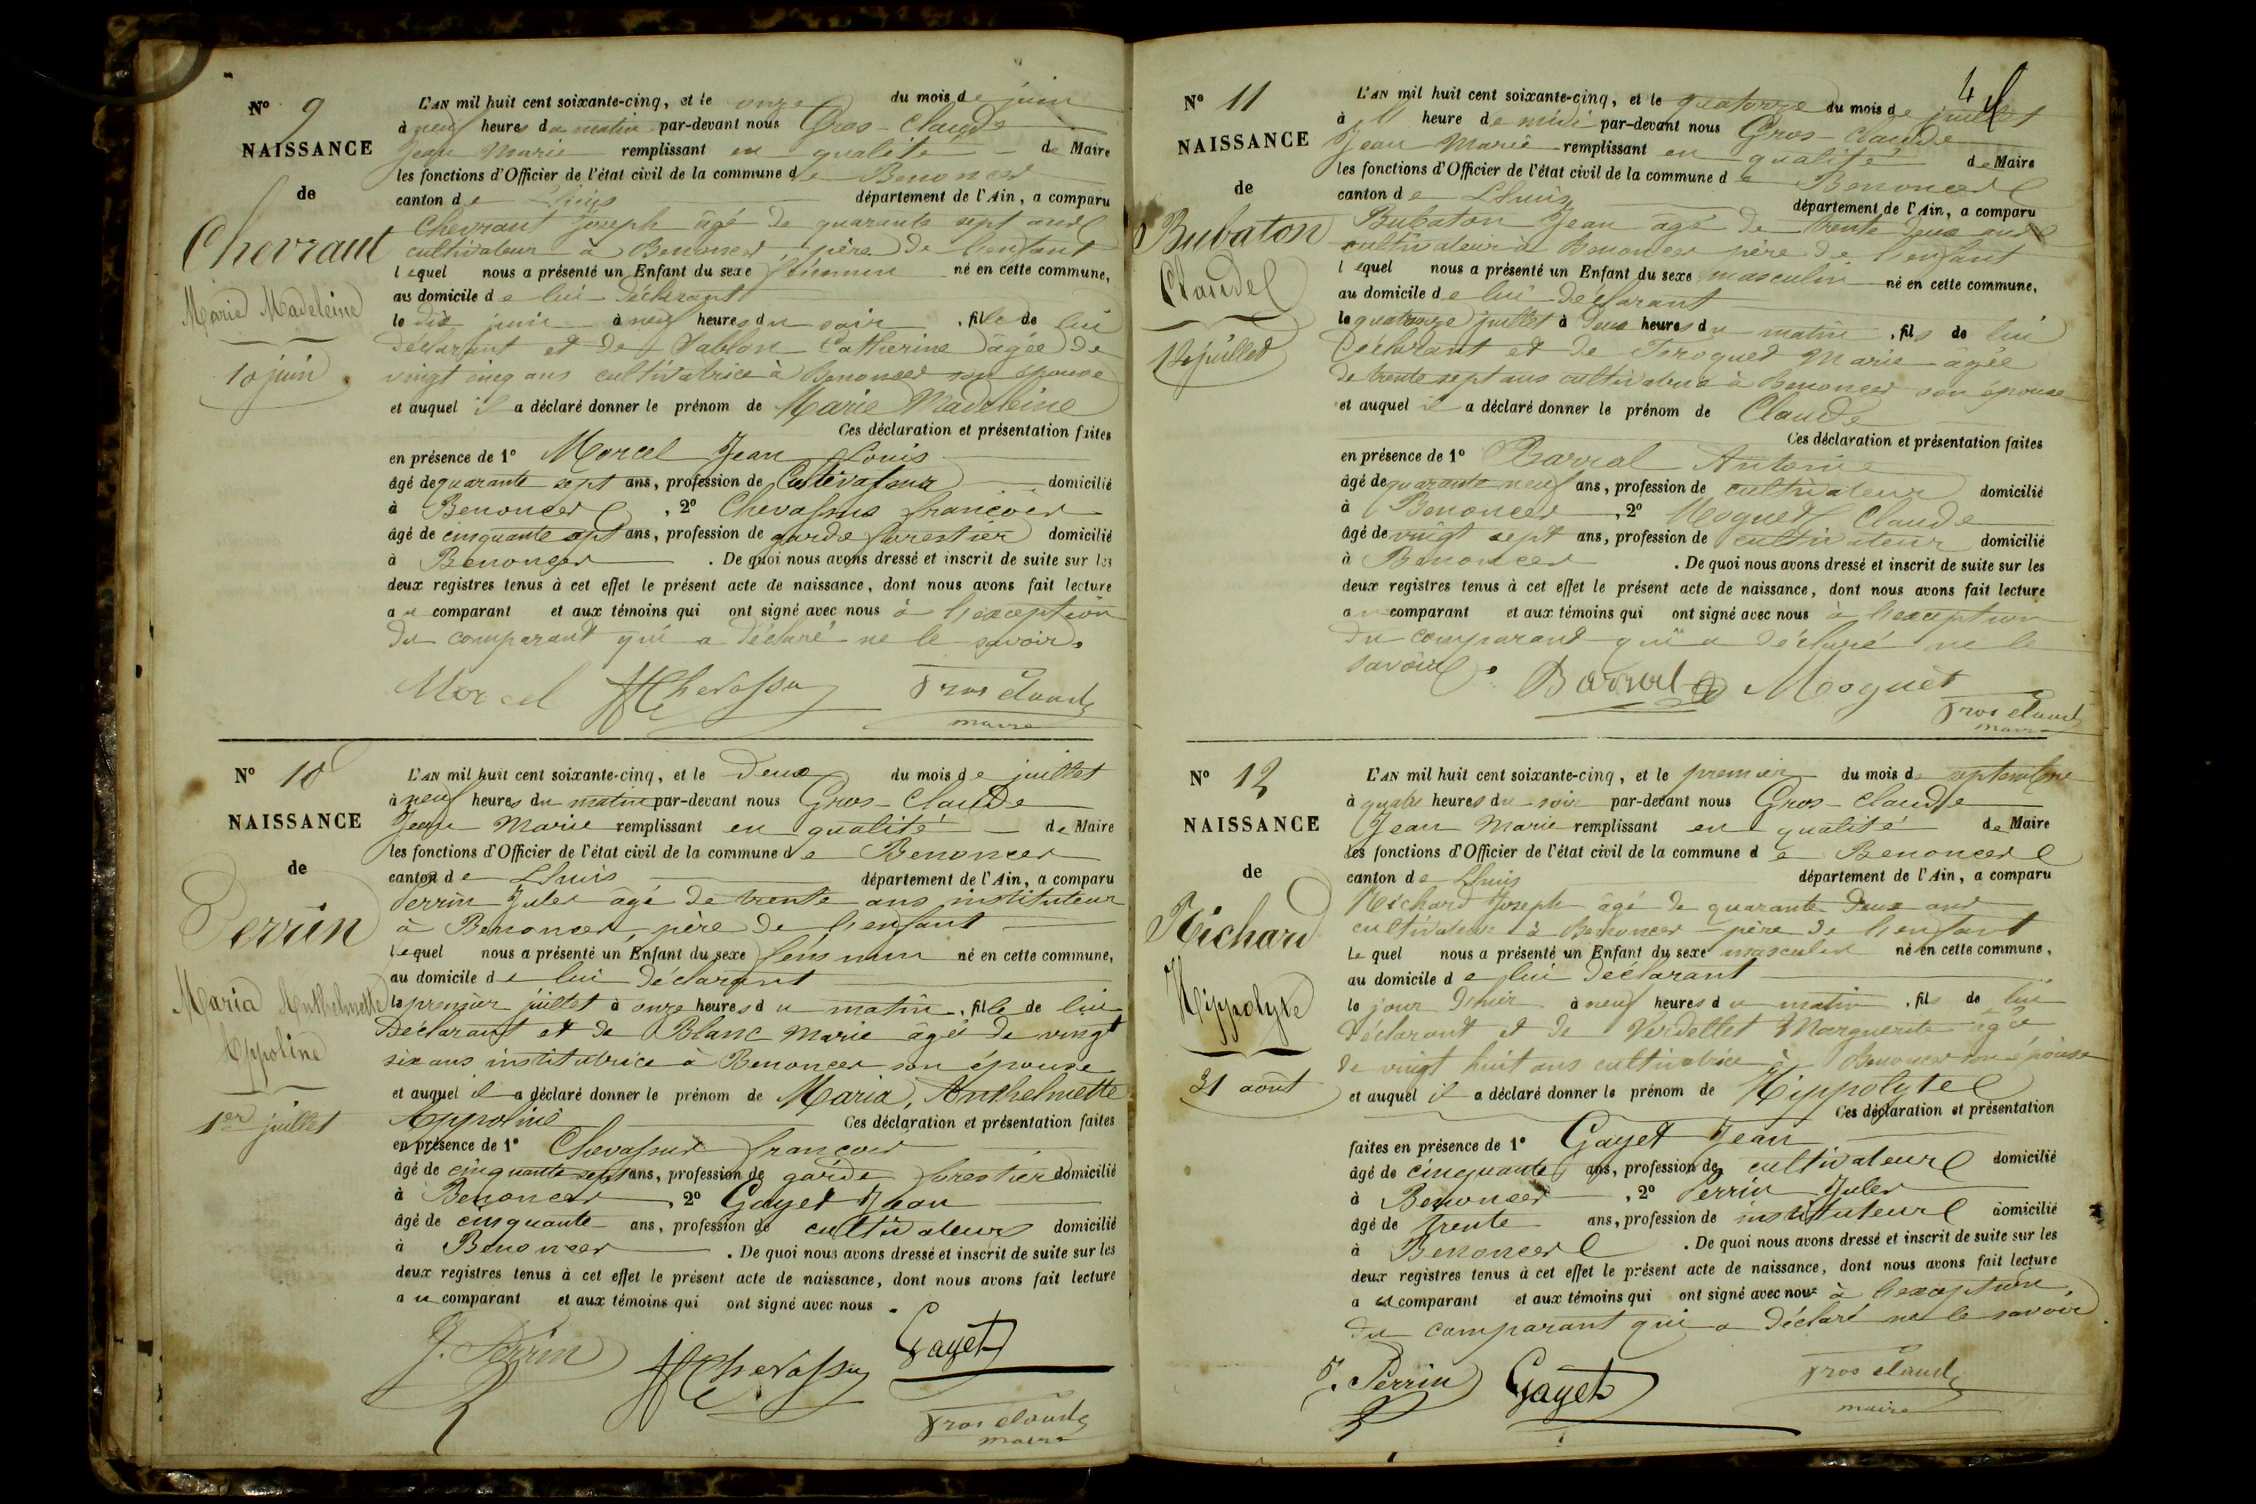 N° 9
NAISSANCE
de
Chevraut
Marie Madeleine
10 juin
L'AN mil huit cent soixante-cinq, et le onze du mois de juin
à neuf heures du matin par-devant nous Gros-Claude
Jean Marie remplissant en qualité de Maire
les fonctions d'Officier de l'état civil de la commune de Benonces
canton de Lhuis département de l'Ain, a comparu
Chevraut Joseph âgé de quarante sept ans
cultivateur à Benonces, père de l'enfant
lequel nous a présenté un Enfant du sexe féminin né en cette commune,
au domicile de lui déclarant
le dix juin à neuf heures du soir, fille de lui
déclarant et de Sablon Catherine âgée de
vingt cinq ans cultivatrice à Benonces son épouse
et auquel il a déclaré donner le prénom de Marie Madeleine
Ces déclaration et présentation faites
en présence de 1° Morcel Jean Louis
âgé de quarante sept ans, profession de Cultivateur domicilié
à Benonces, 2° Chevassus françois
âgé de cinquante sept ans, profession de garde forestier domicilié
à Benonces. De quoi nous avons dressé et inscrit de suite sur les
deux registres tenus à cet effet le présent acte de naissance, dont nous avons fait lecture
au comparant et aux témoins qui ont signé avec nous à l'exception
du comparant qui a déclaré ne le savoir.
Morcel Chevassu Gros Claude
maire
N° 10
NAISSANCE
de
Perrin
Maria Anthelmette
Appoline
1er juillet
L'AN mil huit cent soixante-cinq, et le deux du mois de juillet
à neuf heures du matin par-devant nous Gros-Claude
Jean Marie remplissant en qualité de Maire
les fonctions d'Officier de l'état civil de la commune de Benonces
canton de Lhuis département de l'Ain, a comparu
Perrin Jules âgé de trente ans instituteur
à Benonces, père de l'enfant
lequel nous a présenté un Enfant du sexe féminin né en cette commune,
au domicile de lui déclarant
le premier juillet à onze heures du matin, fille de lui
déclarant et de Blanc Marie âgée de vingt
six ans institutrice à Benonces son épouse
et auquel il a déclaré donner le prénom de Maria, Anthelmette
Appoline Ces déclaration et présentation faites
en présence de 1° Chevassus françois
âgé de cinquante sept ans, profession de garde forestier domicilié
à Benonces, 2° Gayet Jean
âgé de cinquante ans, profession de cultivateur domicilié
à Benonces. De quoi nous avons dressé et inscrit de suite sur les
deux registres tenus à cet effet le présent acte de naissance, dont nous avons fait lecture
au comparant et aux témoins qui ont signé avec nous.
J. Perrin Chevassu Gayet
Gros Claude
maire
4
N° 11
NAISSANCE
de
Bubaton
Claude
14 juillet
L'AN mil huit cent soixante-cinq, et le quatorze du mois de juillet
à heure de midi par-devant nous Gros-Claude
Jean Marie remplissant en qualité de Maire
les fonctions d'Officier de l'état civil de la commune de Benonces
canton de Lhuis département de l'Ain, a comparu
Bubaton Jean âgé de trente deux ans
cultivateur à Benonces père de l'enfant
lequel nous a présenté un Enfant du sexe masculin né en cette commune,
au domicile de lui déclarant
le quatorze juillet à deux heures du matin, fils de lui
déclarant et de Marie âgée
de trente sept ans cultivatrice à Benonces son épouse
et auquel il a déclaré donner le prénom de Claude
Ces déclaration et présentation faites
en présence de 1° Barral Antoine
âgé de quarante neuf ans, profession de cultivateur domicilié
à Benonces, 2° Moguet Claude
âgé de vingt sept ans, profession de cultivateur domicilié
à Benonces. De quoi nous avons dressé et inscrit de suite sur les
deux registres tenus à cet effet le présent acte de naissance, dont nous avons fait lecture
au comparant et aux témoins qui ont signé avec nous à l'exception
du comparant qui a déclaré ne le
savoir.
Barral Moguet
Gros Claude
maire
N° 12
NAISSANCE
de
Richard
Hippolyte
31 août
L'AN mil huit cent soixante-cinq, et le premier du mois de septembre
à quatre heures du soir par-devant nous Gros-Claude
Jean Marie remplissant en qualité de Maire
les fonctions d'Officier de l'état civil de la commune de Benonces
canton de Lhuis département de l'Ain, a comparu
Richard Joseph âgé de quarante deux ans
cultivateur à Benonces père de l'enfant
Lequel nous a présenté un Enfant du sexe masculin né en cette commune,
au domicile de lui déclarant
le jour d'hier à neuf heures du matin, fils de lui
déclarant et de Verdellet Marguerite âgée
de vingt huit ans cultivatrice à Benonces son épouse
et auquel il a déclaré donner le prénom de Hippolyte
Ces déclaration et présentation
faites en présence de 1° Gayet Jean
âgé de cinquante ans, profession de cultivateur domicilié
à Benonces, 2° Perrin Jules
âgé de trente ans, profession de instituteur domicilié
à Benonces. De quoi nous avons dressé et inscrit de suite sur les
deux registres tenus à cet effet le présent acte de naissance, dont nous avons fait lecture
au comparant et aux témoins qui ont signé avec nous à l'exception
du comparant qui a déclaré ne le savoir.
J. Perrin Gayet Gros Claude
maire